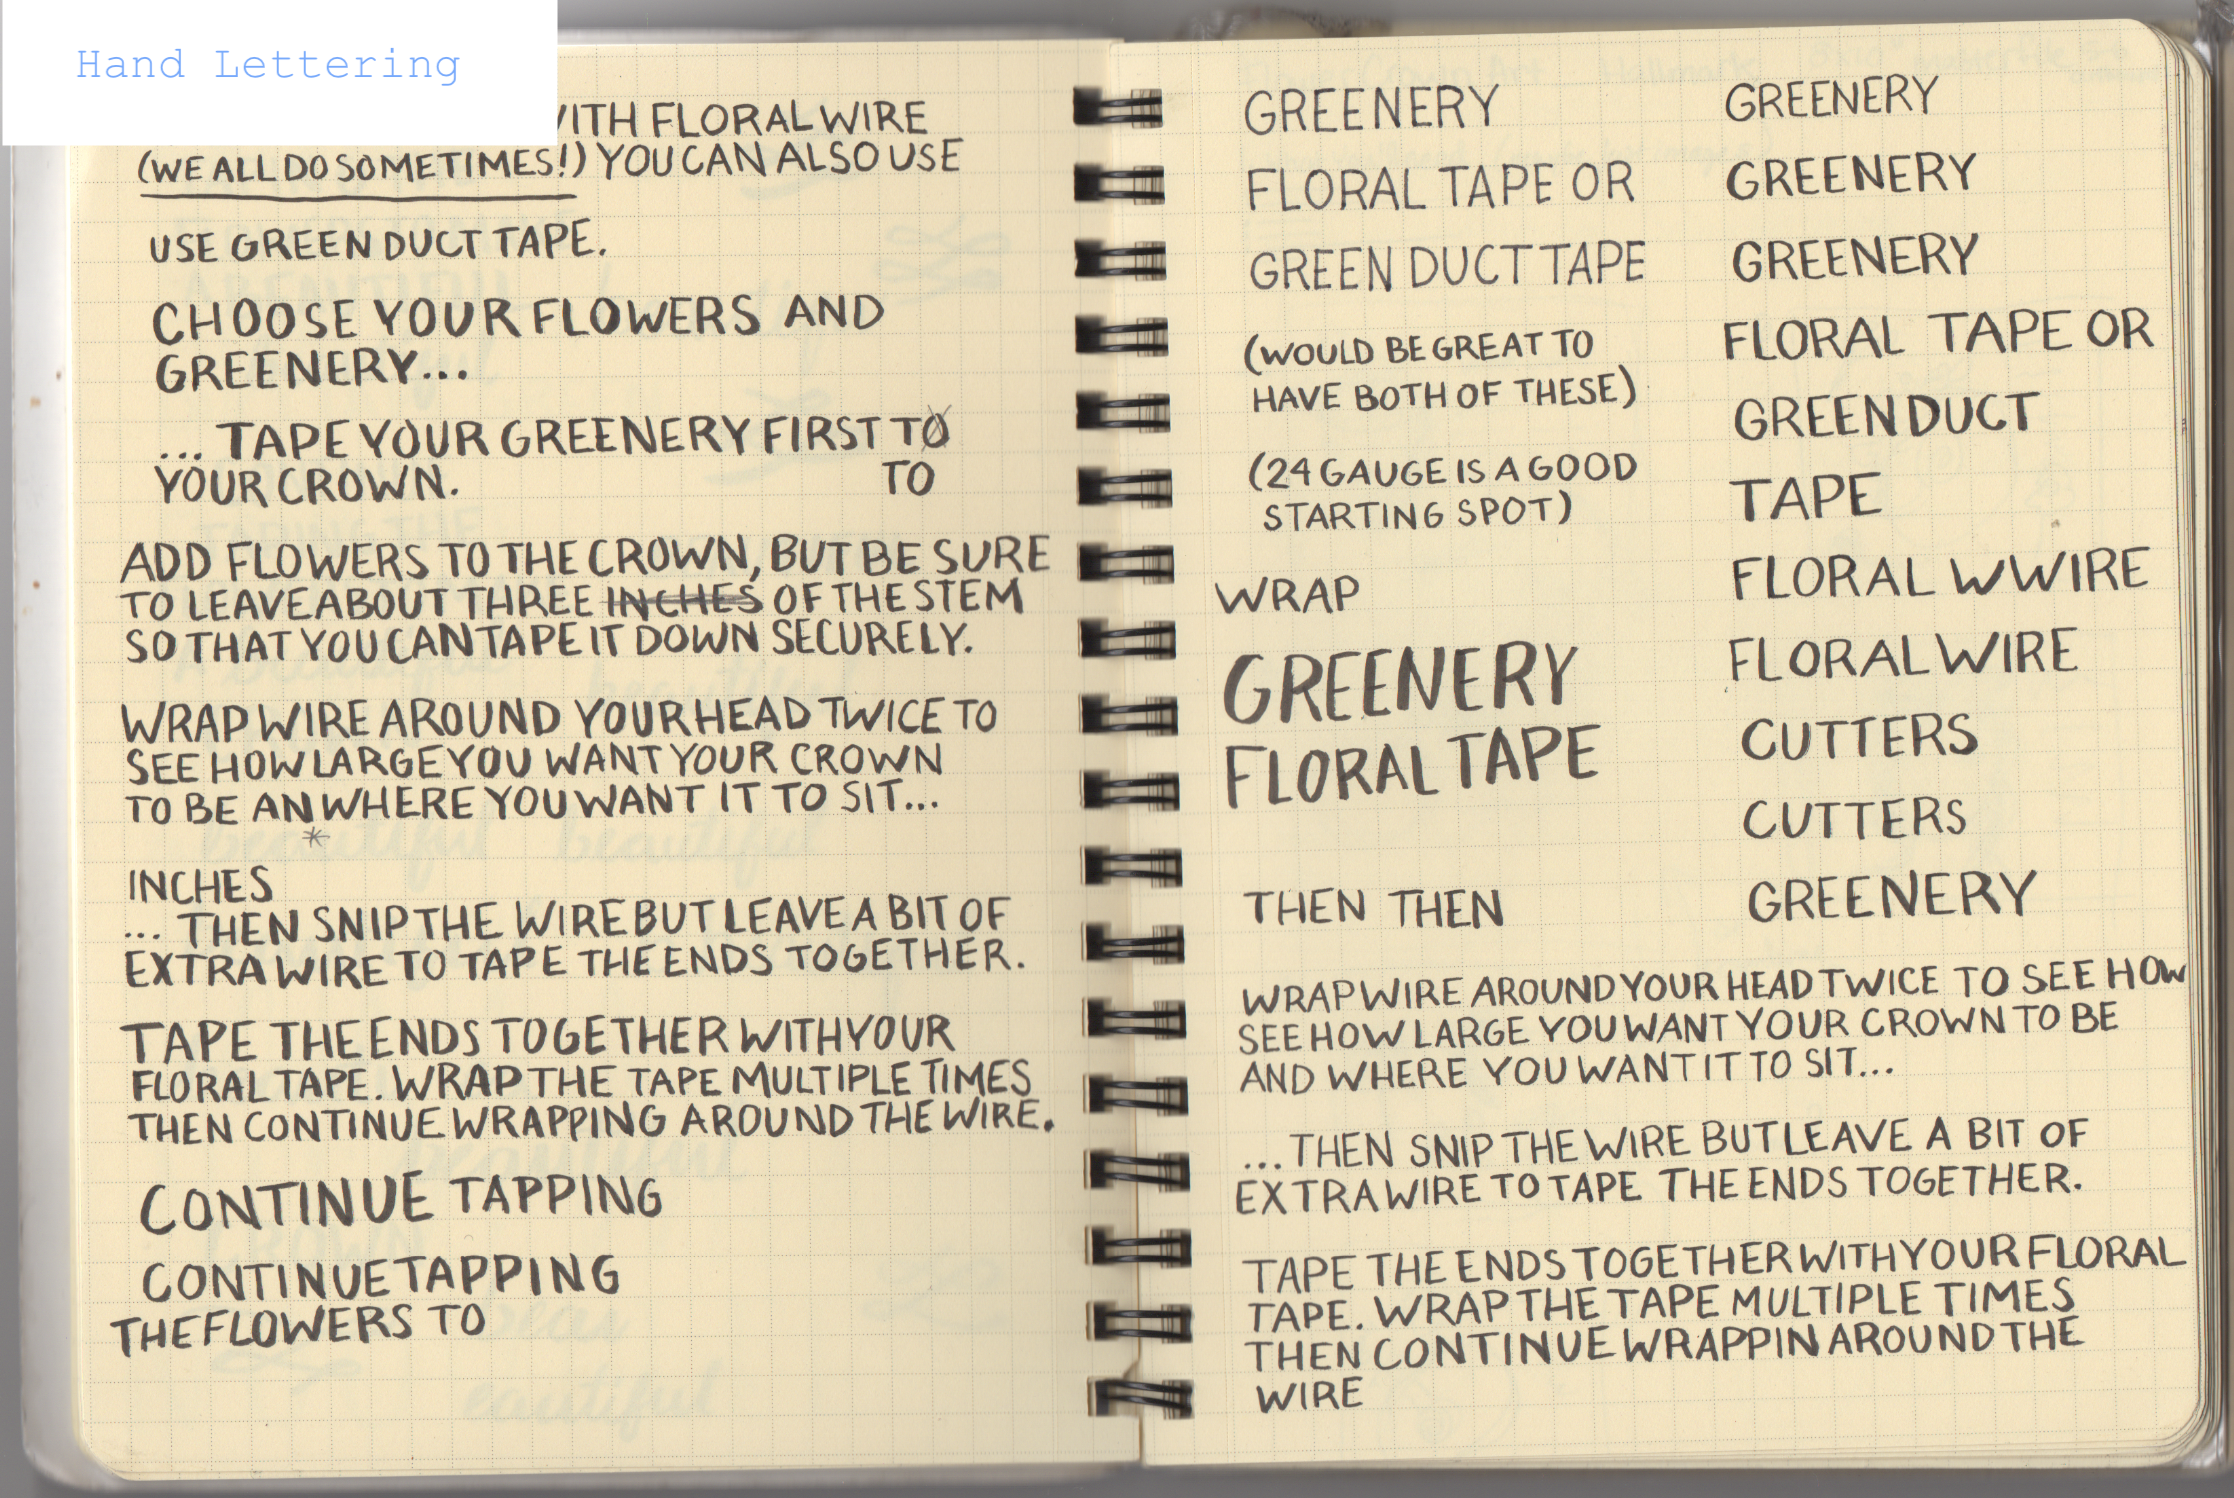 Hand Lettering
WITH FLORAL WIRE
(WE ALL DO SOMETIMES!) YOU CAN ALSO USE
USE GREEN DUCT TAPE.
CHOOSE YOUR FLOWERS AND
GREENERY...
... TAPE YOUR GREENERY FIRST TO
YOUR CROWN. TO
ADD FLOWERS TO THE CROWN, BUT BE SURE
TO LEAVE ABOUT THREE INCHES OF THE STEM
SO THAT YOU CAN TAPE IT DOWN SECURELY.
WRAP WIRE AROUND YOUR HEAD TWICE TO
SEE HOW LARGE YOU WANT YOUR CROWN
TO BE AN WHERE YOU WANT IT TO SIT...
*
INCHES
... THEN SNIP THE WIRE BUT LEAVE A BIT OF
EXTRA WIRE TO TAPE THE ENDS TOGETHER.
TAPE THE ENDS TOGETHER WITH YOUR
FLORAL TAPE. WRAP THE TAPE MULTIPLE TIMES
THEN CONTINUE WRAPPING AROUND THE WIRE.
CONTINUE TAPPING
CONTINUE TAPPING
THE FLOWERS TO
GREENERY
FLORAL TAPE OR
GREEN DUCT TAPE
(WOULD BE GREAT TO
HAVE BOTH OF THESE)
(24 GAUGE IS A GOOD
STARTING SPOT)
WRAP
GREENERY
FLORAL TAPE
THEN THEN
GREENERY
GREENERY
GREENERY
FLORAL TAPE OR
GREEN DUCT
TAPE
FLORAL WWIRE
FLORAL WIRE
CUTTERS
CUTTERS
GREENERY
WRAP WIRE AROUND YOUR HEAD TWICE TO SEE HOW
SEE HOW LARGE YOU WANT YOUR CROWN TO BE
AND WHERE YOU WANT IT TO SIT...
...THEN SNIP THE WIRE BUT LEAVE A BIT OF
EXTRA WIRE TO TAPE THE ENDS TOGETHER.
TAPE THE ENDS TOGETHER WITH YOUR FLORAL
TAPE. WRAP THE TAPE MULTIPLE TIMES
THEN CONTINUE WRAPPIN AROUND THE
WIRE